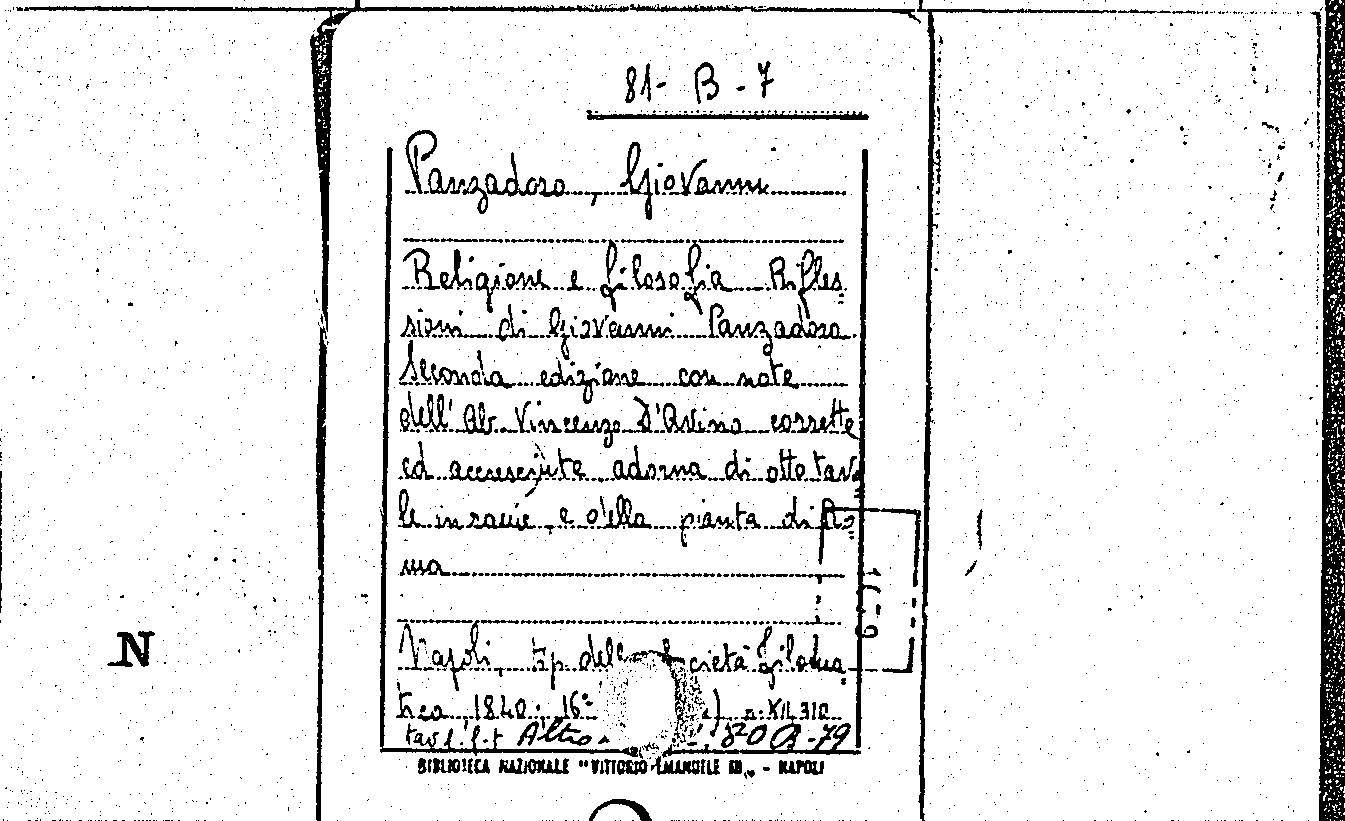 81- B - 7
Panzadoro, Giovanni
Religione e filosofia Rifles=
sioni di Giovanni Panzadoro
Seconda edizione con note
dell' Ab. Vincenzo D'Avino corrette
ed accresciute, adorna di otto tavo=
le in rame, e della pianta di Ro=
ma
Napoli, tip. della cietà Filoma=
tica, 1840. 16° p. XII, 310
tav. f. t. Altro 80 B-79
BIBLIOTECA NAZIONALE "VITTORIO EMANUELE III" - NAPOLI
N